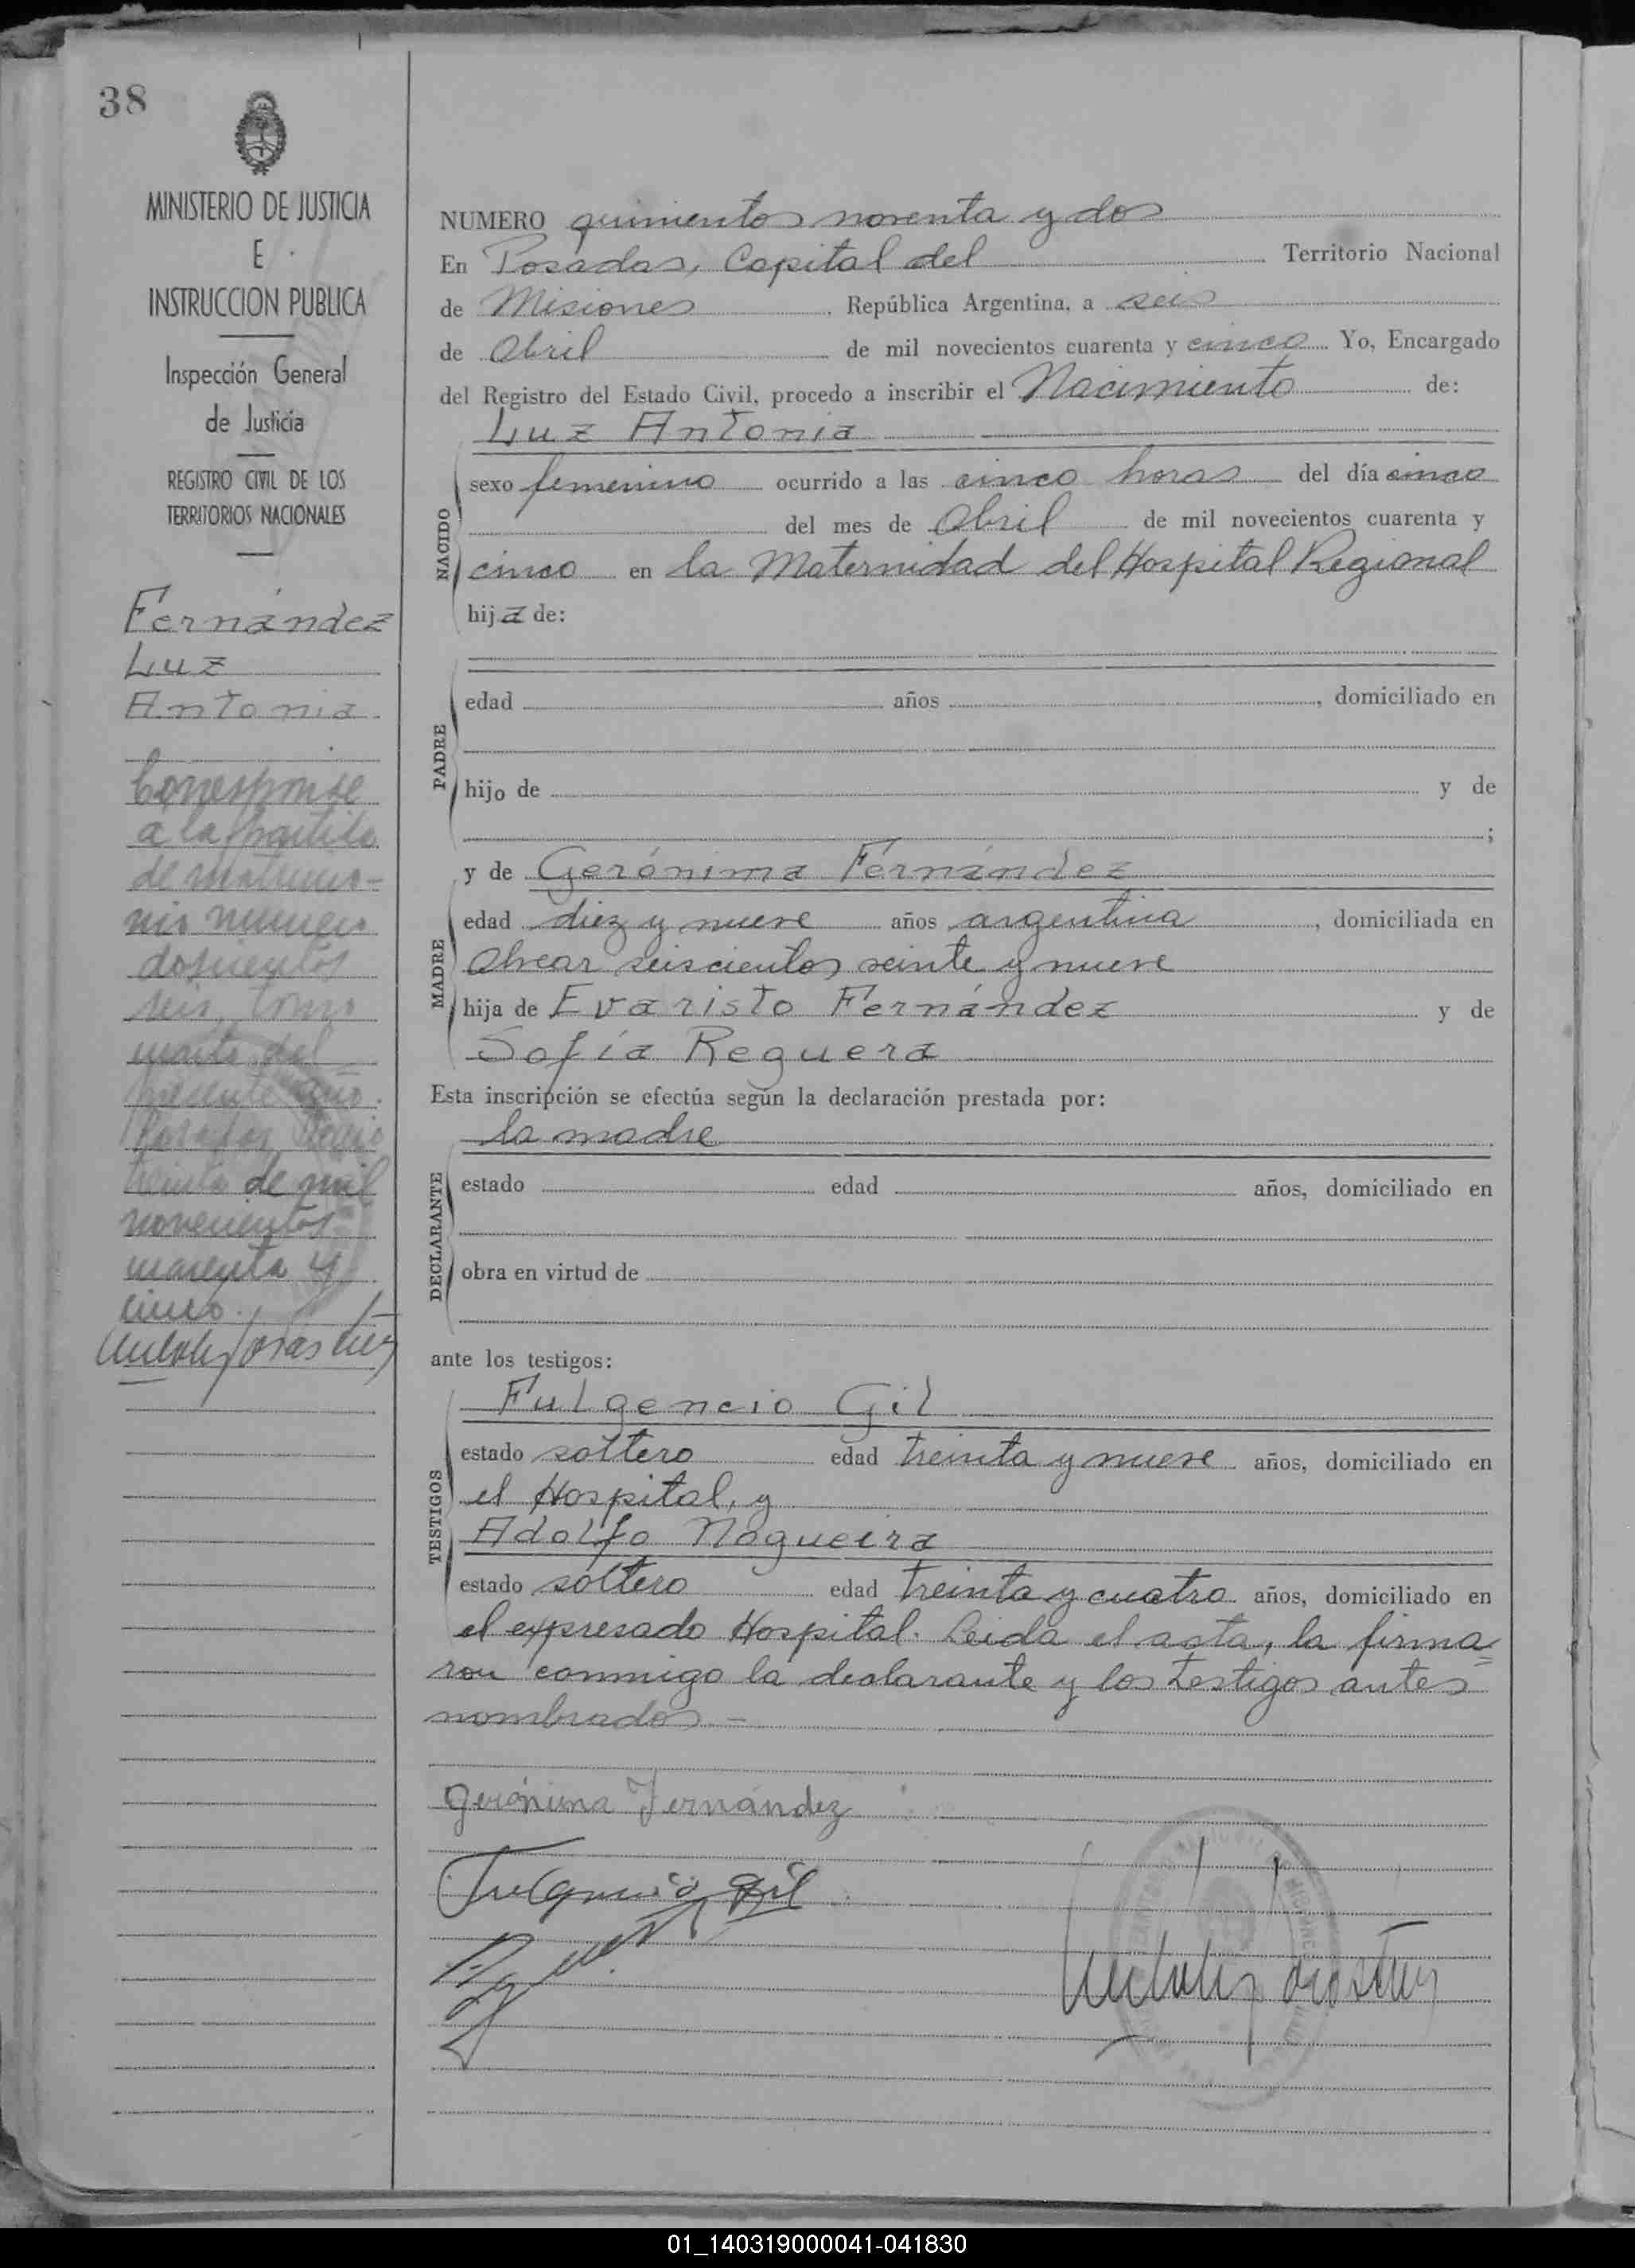 38
MINISTERIO DE JUSTICIA
E
INSTRUCCION PUBLICA
Inspección General
de Justicia
REGISTRO CIVIL DE LOS
TERRITORIOS NACIONALES
Fernández
Luz
Antonia
Corresponde
a la partida
de matrimo-
nio número
doscientos
seis, tomo
cuarto del
presente año.
Posadas,
treinta de mil
novecientos
cuarenta y
cinco.
NUMERO quinientos noventa y dos
En Posadas, Capital del Territorio Nacional
de Misiones, República Argentina, a seis
de Abril de mil novecientos cuarenta y cinco Yo, Encargado
del Registro del Estado Civil, procedo a inscribir el Nacimiento de:
Luz Antonia
NACIDO
sexo femenino ocurrido a las cinco horas del día cinco
del mes de Abril de mil novecientos cuarenta y
cinco en la Maternidad del Hospital Regional
hija de:
PADRE
edad años , domiciliado en
hijo de y de
;
y de Gerónima Fernández
MADRE
edad diez y nueve años argentina, domiciliada en
Alvear seiscientos veinte y nueve
hija de Evaristo Fernández y de
Sofía Reguera
Esta inscripción se efectúa según la declaración prestada por:
la madre
DECLARANTE
estado edad años, domiciliado en
obra en virtud de
ante los testigos:
Fulgencio Gil
TESTIGOS
estado soltero edad treinta y nueve años, domiciliado en
el Hospital, y
Adolfo Nogueira
estado soltero edad treinta y cuatro años, domiciliado en
el expresado Hospital. Leida el acta, la firma=
ron conmigo la declarante y los testigos antes
nombrados.-
Gerónima Fernández
Fulgencio Gil
01_140319000041-041830